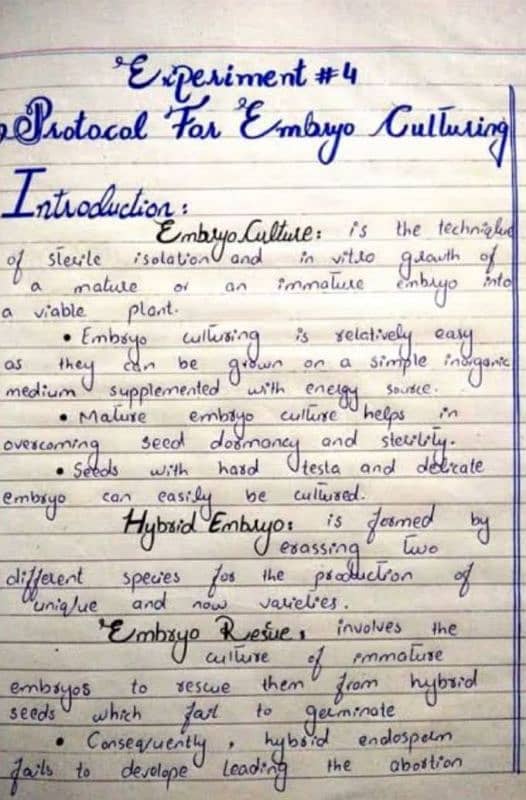 Experiment #4
Protocol For Embryo Culturing
Introduction:
Embryo Culture: is the technique
of sterile isolation and in vitro growth of
a mature or an immature embryo into
a viable plant.
• Embryo culturing is relatively easy
as they can be grown on a simple inorganic
medium supplemented with energy source.
• Mature embryo culture helps in
overcoming seed dormancy and sterility.
• Seeds with hard testa and delicate
embryo can easily be cultured.
Hybrid Embryo: is formed by
crossing two
different species for the production of
unique and now varieties.
Embryo Resue: involves the
culture of immature
embryos to rescue them from hybrid
seeds which fail to germinate
• Consequently, hybrid endosperm
fails to develope leading the abortion